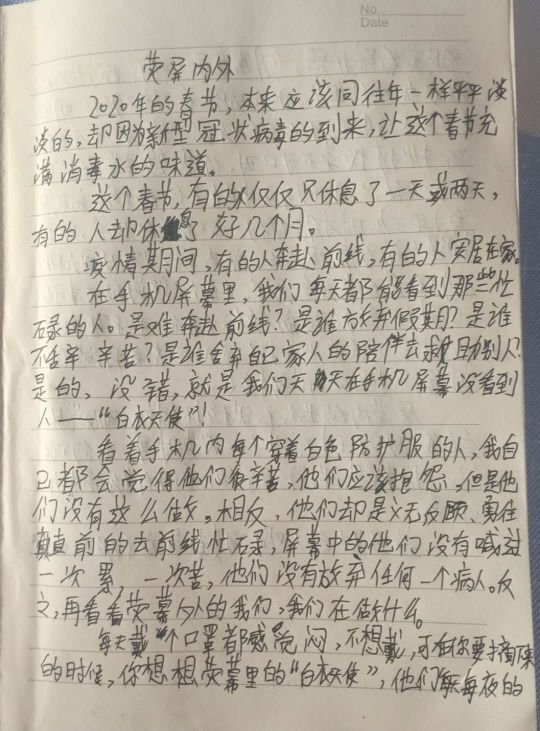 No.
Date
荧屏内外
2020年的春节，本来应该同往年一样平平淡
淡的，却因为新型冠状病毒的到来，让这个春节充
满消毒水的味道。
这个春节，有的人仅仅只休息了一天或两天，
有的人却休息了好几个月。
疫情期间，有的人奔赴前线，有的人安居在家。
在手机屏幕里，我们每天都能看到那些忙
碌的人。是谁奔赴前线？是谁放弃假期？是谁
不舍辛辛苦？是谁舍弃自己家人的陪伴去救助别人？
是的，没错，就是我们天天在手机屏幕没看到
人——“白衣天使”！
看着手机内每个穿着白色防护服的人，我自
己都会觉得他们很辛苦，他们应该抱怨。但是他
们没有这么做。相反，他们却是义无反顾、勇往
直前的去前线忙碌，屏幕中的他们没有喊过
一次累，一次苦，他们没有放弃任何一个病人。反
之，再看看荧幕外的我们，我们在做什么。
每天戴个口罩都感觉闷，不想戴，可在你要摘下来
的时候，你想想荧幕里的“白衣天使”，他们每天每夜的